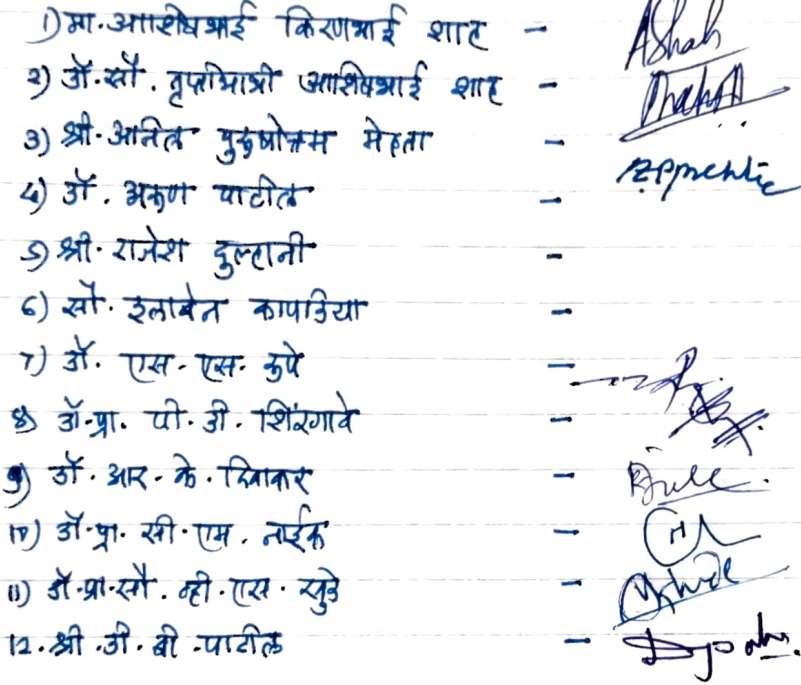 1) मा. आशिषभाई किरणभाई शाह - AShah
२) डॉ. सौ. तृप्तीमात्री आशिषभाई शाह -
3) श्री. अनिल पुरुषोत्तम मेहता -
4) डॉ. अरुण पाटील -
5) श्री. राजेश दुल्हानी -
6) सौ. इलाबेन कापडिया -
7) डॉ. एस. एस. कुपे -
8) डॉ. प्रा. पी. डी. शिरगावे -
9) डॉ. आर. के. दिवाकर -
10) डॉ. प्रा. सी. एम. नाईक -
11) डॉ. प्रा. सौ. व्ही. एस. खुडे -
12. श्री. डी. बी. पाटील -